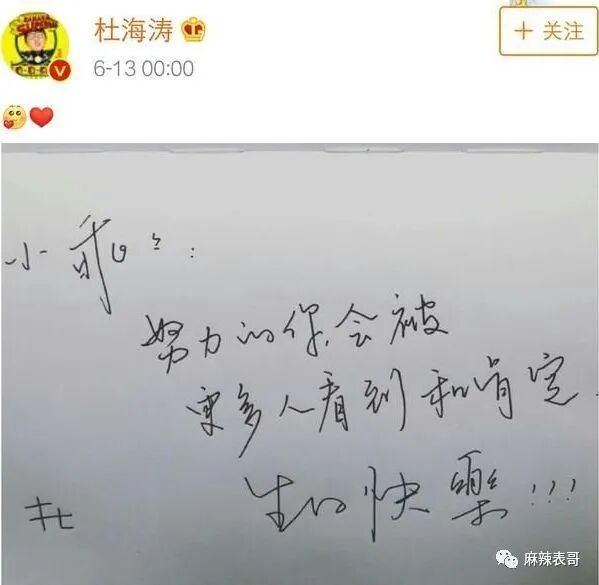 杜海涛
+ 关注
6-13 00:00
小乖々:
努力的你,会被
更多人看到和肯定.
生日快樂!!!
麻辣表哥